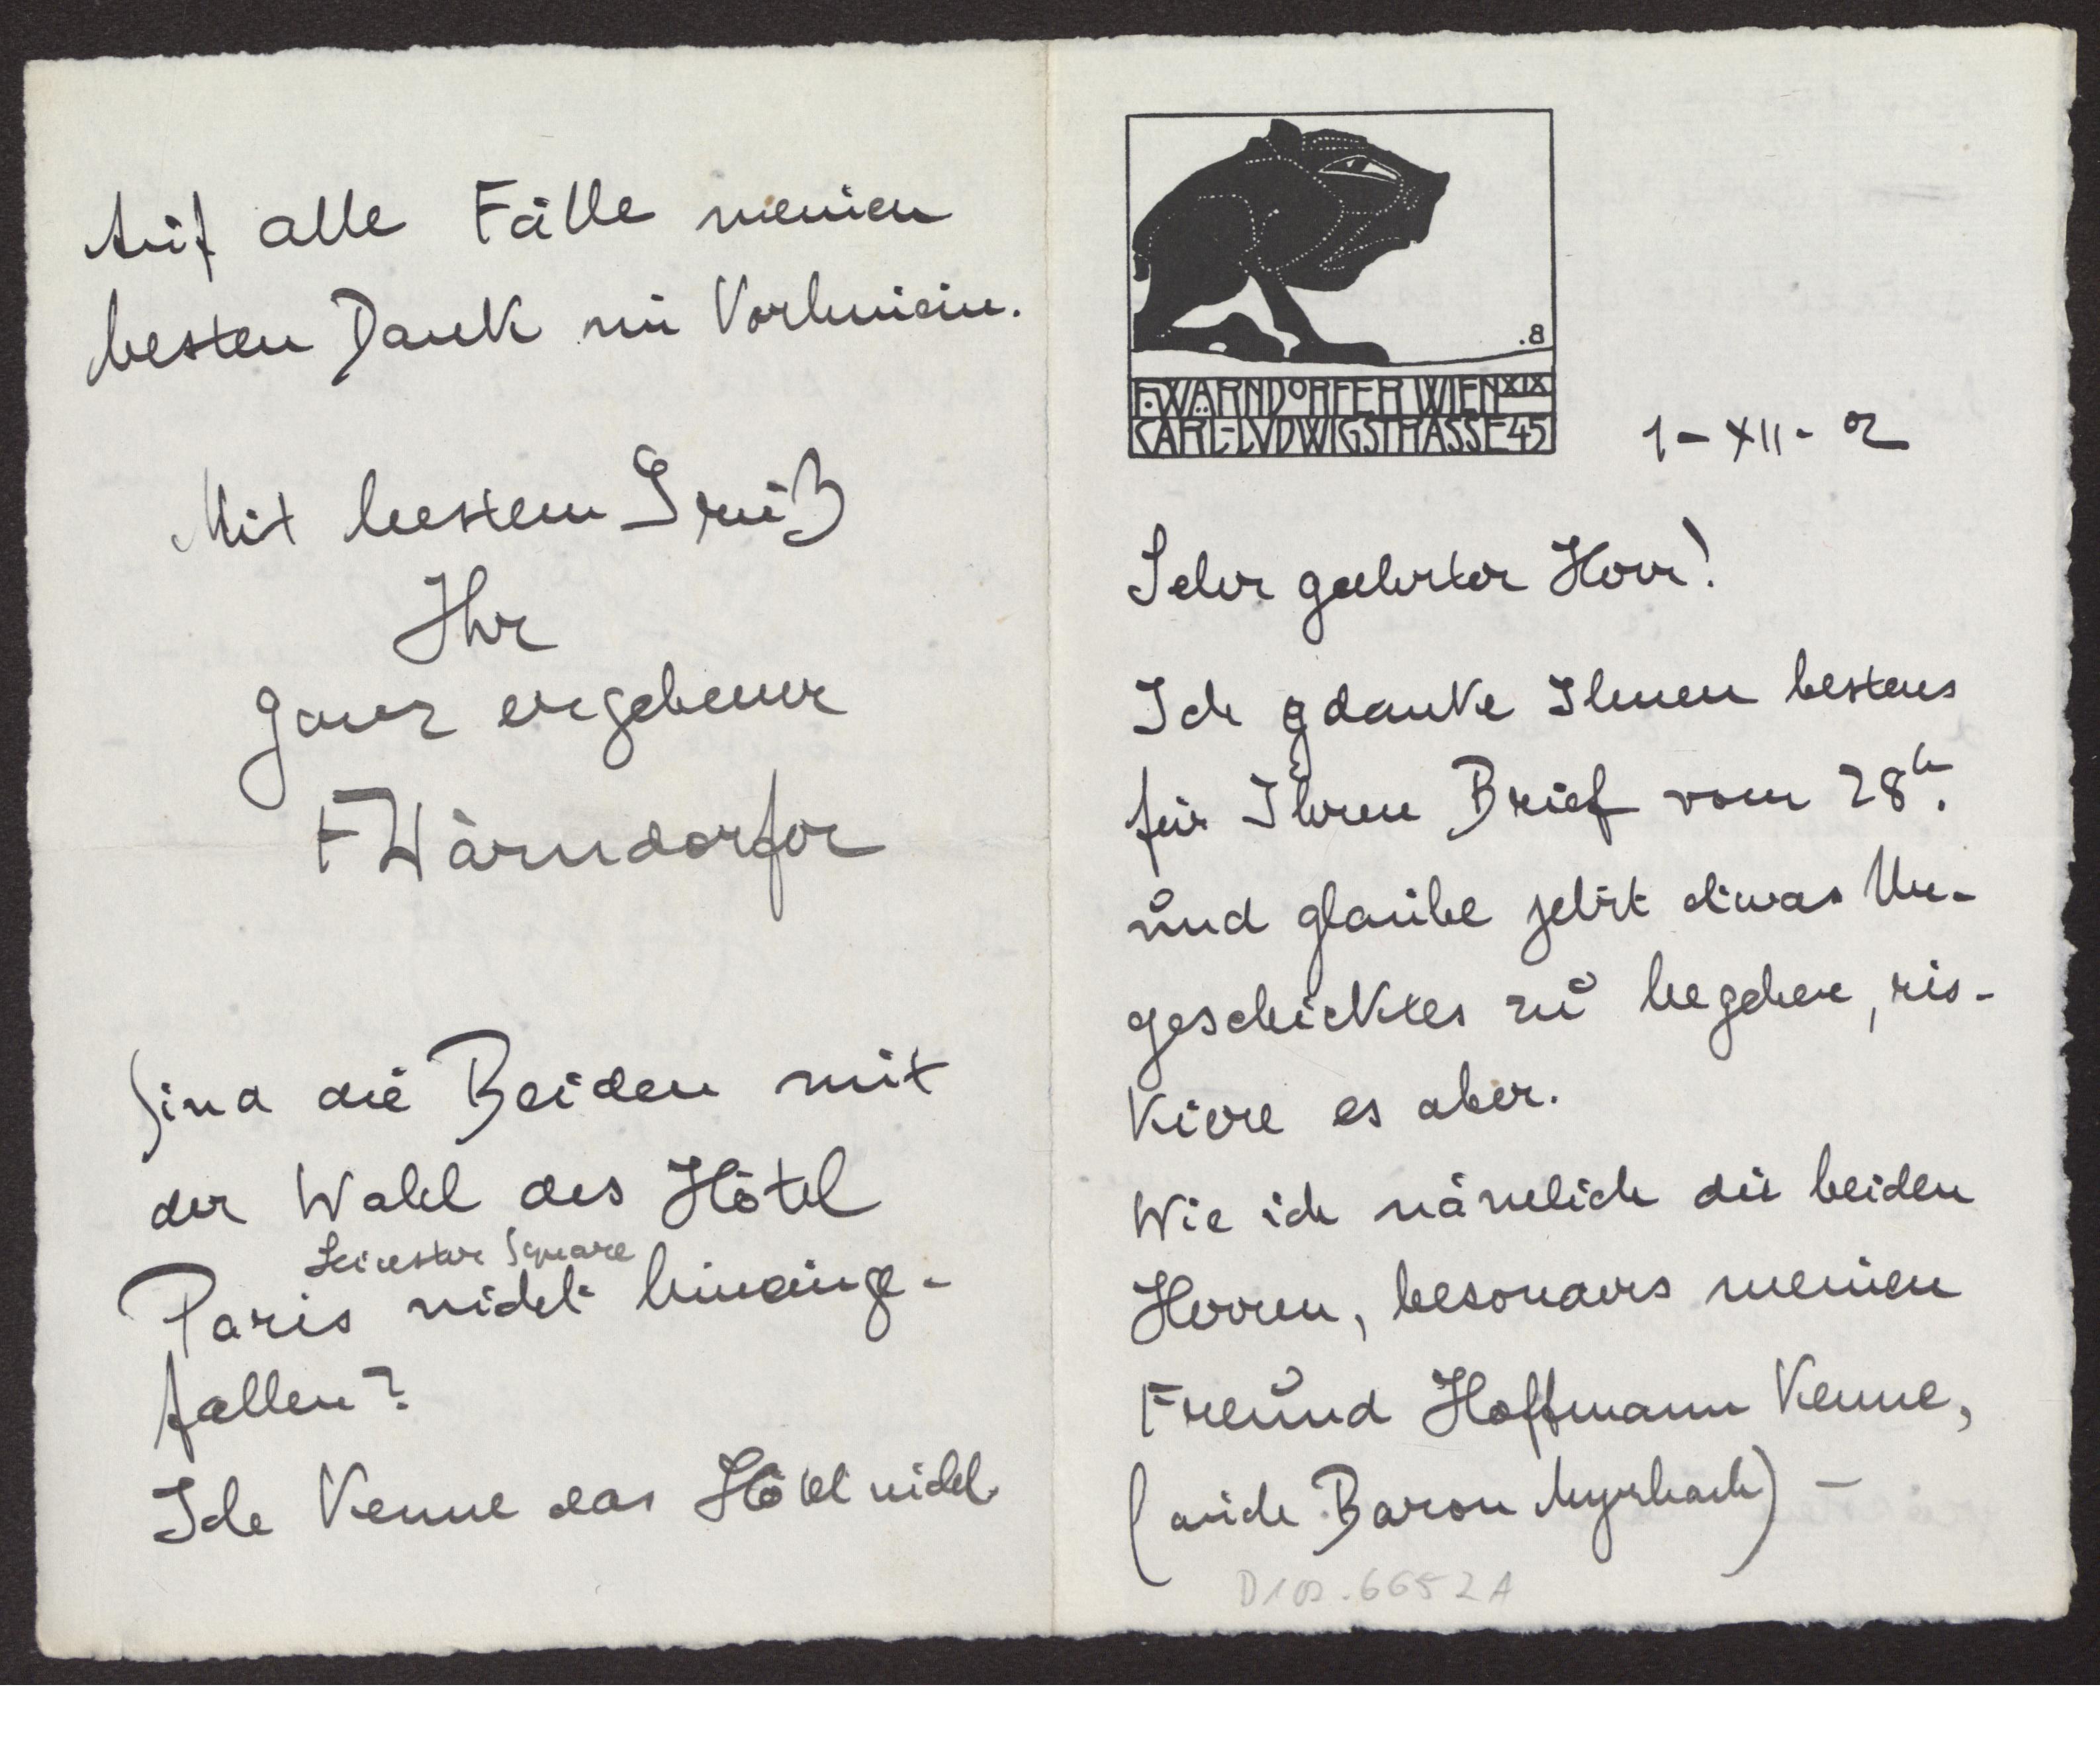 .8
F. WÄRNDORFER WIEN XIX
CARL-LVDWIGSTRASSE 45
1-XII-02
Sehr geehrter Herr!
Ich danke Ihnen bestens
für Ihren Brief vom 28ⁿ.
und glaube jetzt etwas Un-
geschicktes zu begehen, ris-
kiere es aber.
Wie ich nämlich die beiden
Herren, besonders meinen
Freund Hoffmann kenne,
(auch Baron Myrbach) –
D109.6652A
Auf alle Fälle meinen
besten Dank im Vorhinein.
Mit bestem Gruß
Ihr
ganz ergebener
FWärndorfer
Sind die Beiden mit
der Wahl des Hôtel
Leicester Square
Paris nicht hineinge-
fallen?
Ich kenne das Hôtel nicht.